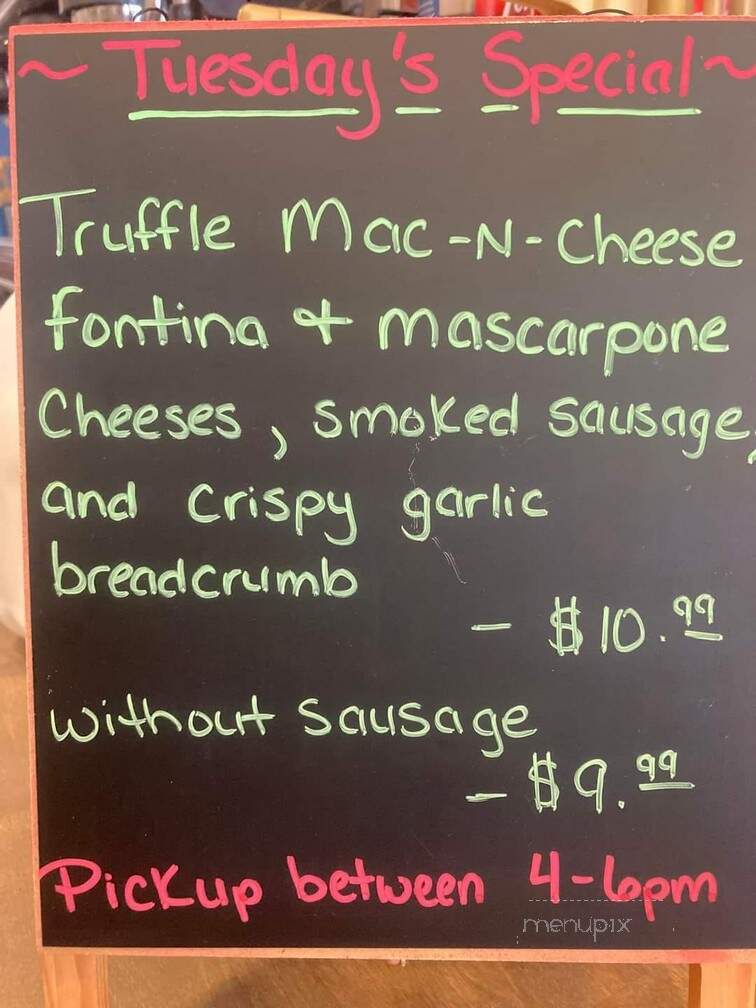 ~ Tuesday's Special ~
Truffle Mac-N-Cheese
fontina & mascarpone
Cheeses, smoked sausage,
and crispy garlic
breadcrumb
- $10.99
without sausage
- $9.99
Pickup between 4-6pm
menupix